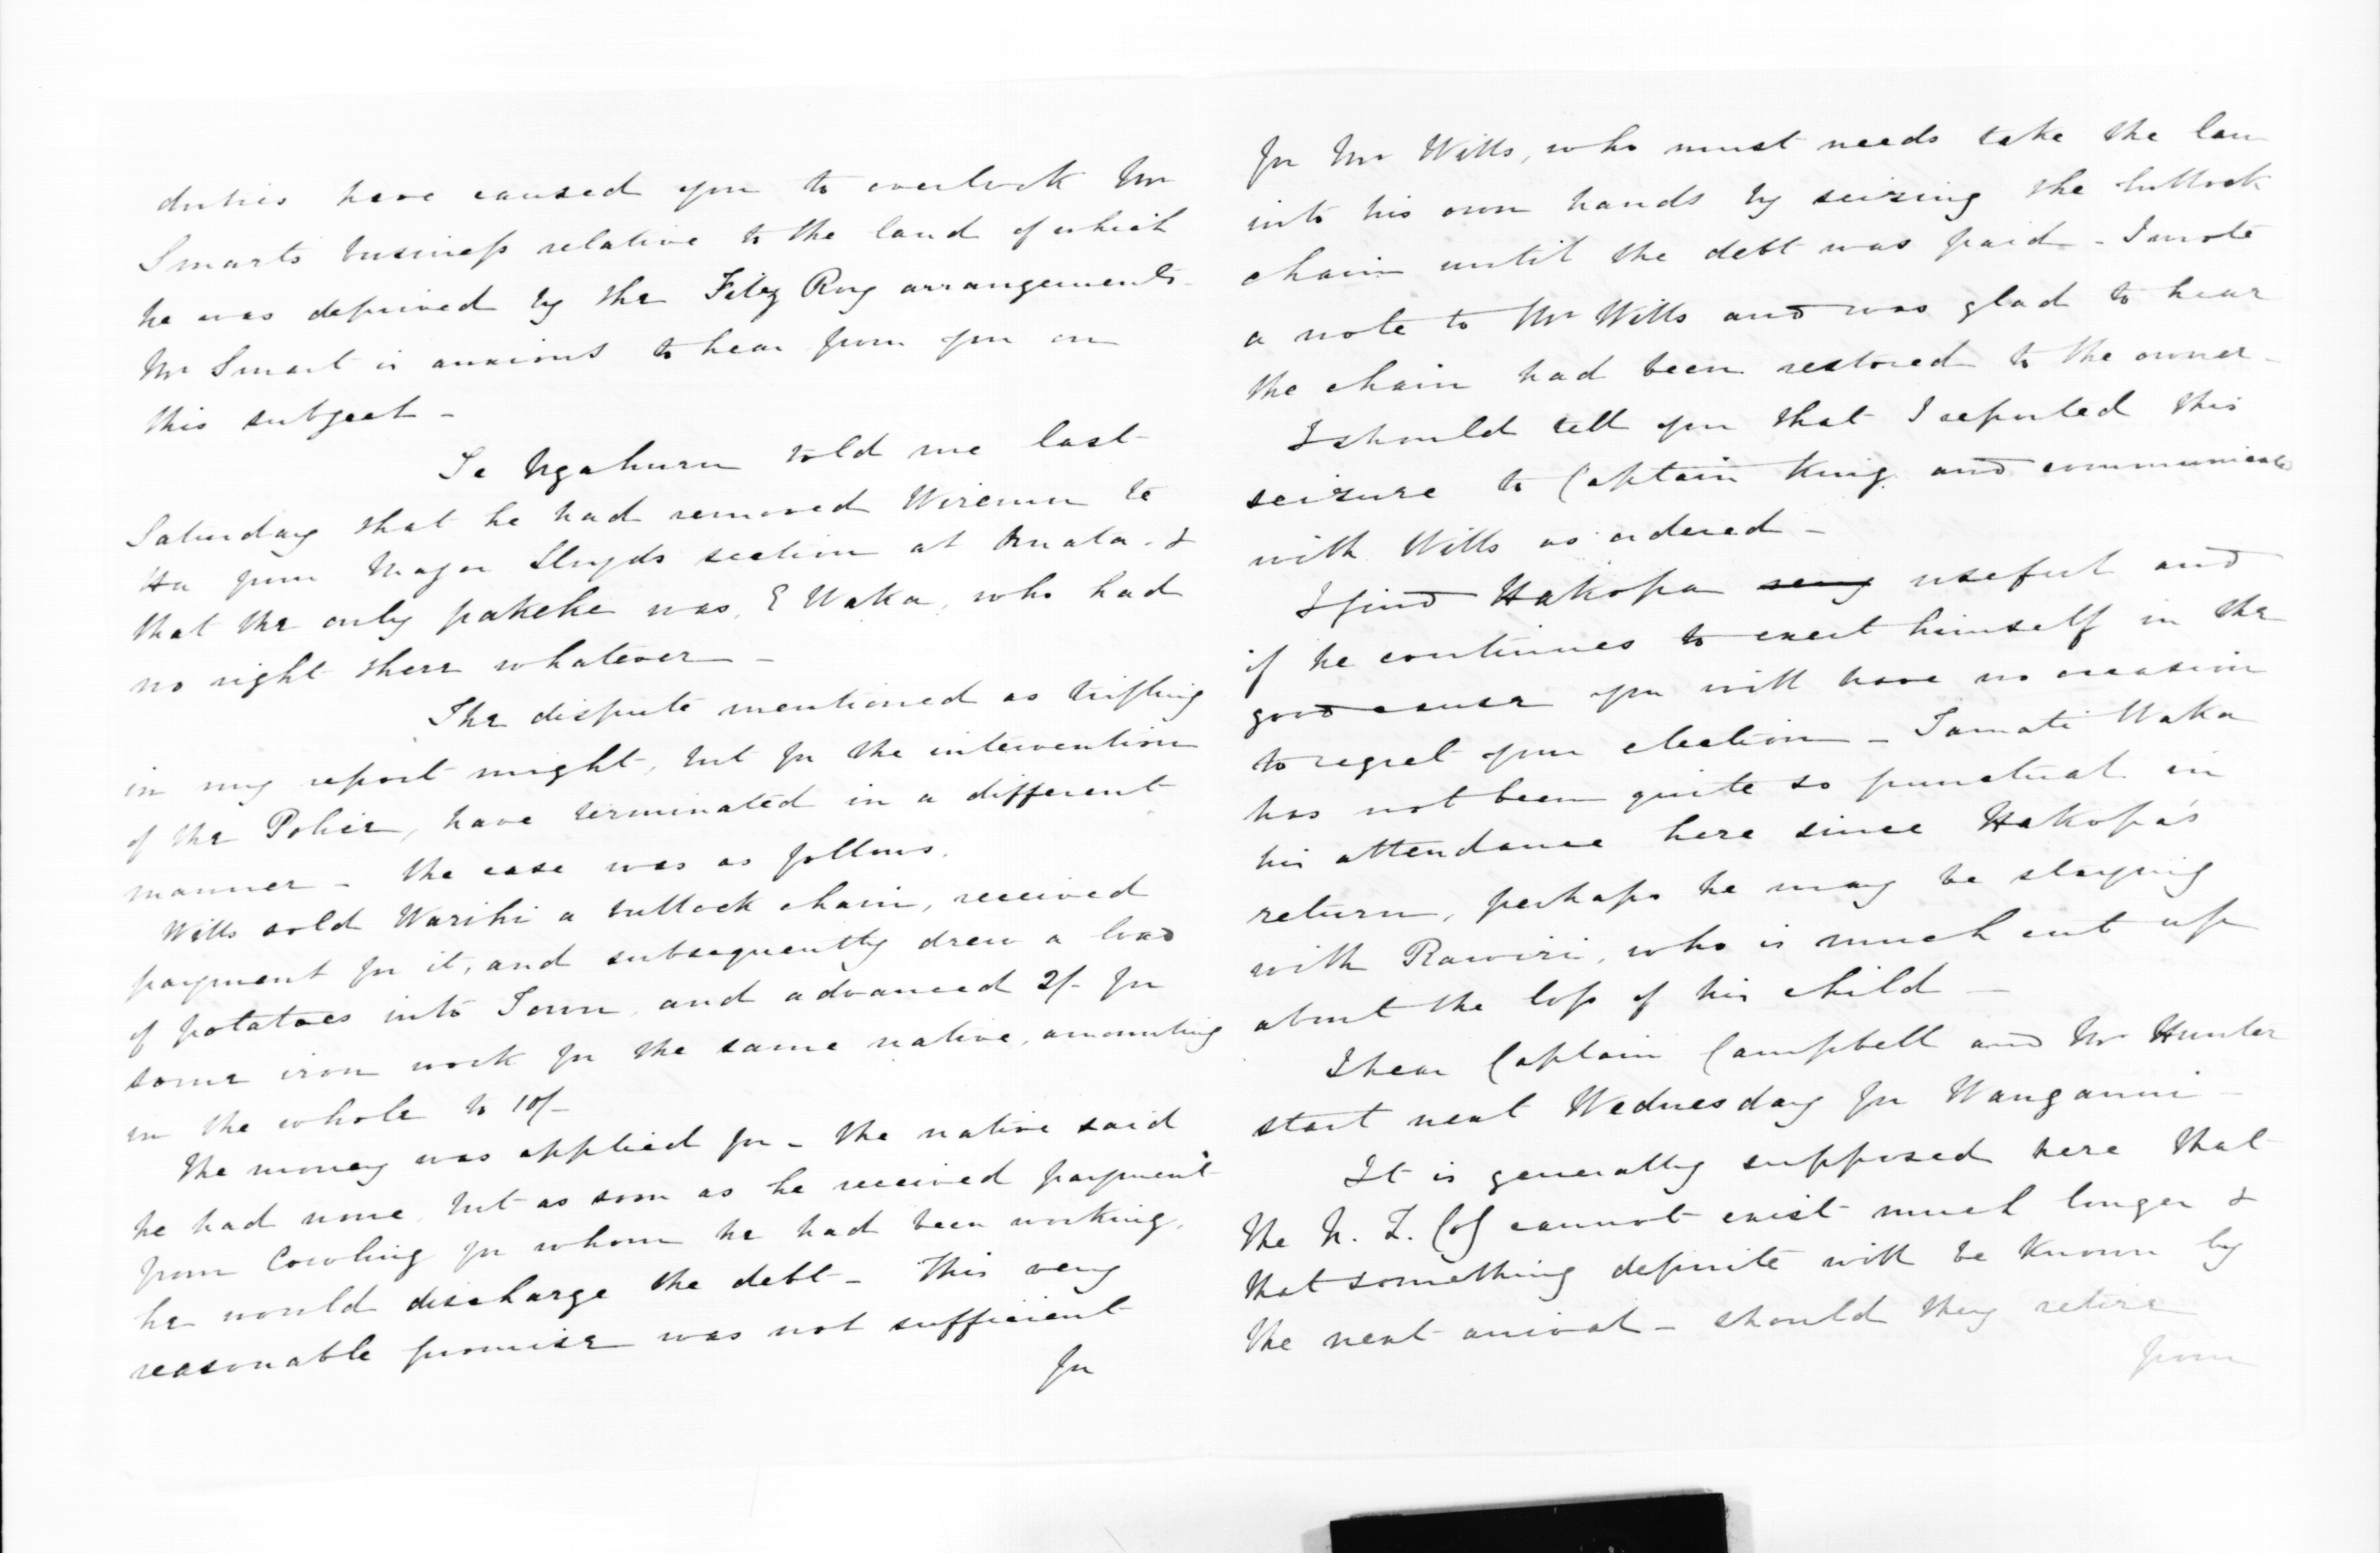 duties have caused you to overlook Mr
Smarts business relative to the land of which
he was deprived by the Fitz Roy arrangements.
Mr Smart is anxious to hear from you on
this subject -
Te Ngahuru told me last
Saturday that he had removed Wiremu te
Hu from Major Lloyds section at Omata. &
that the only pakeke was, E Waka, who had
no right there whatever -
The dispute mentioned as trifling
in my report might, but for the intervention
of the Police, have terminated in a different
manner - the case was as follows.
Wills sold Warihi a bullock chain, received
payment for it, and subsequently drew a load
of potatoes into Town, and advanced 2/- for
some iron work for the same native, amounting
in the whole to 10/-
The money was applied for - the native said
he had none, but as soon as he received payment
from Cowling for whom he had been working,
he would discharge the debt - This very
reasonable promise was not sufficient
for
for Mr Wills, who must needs take the law
into his own hands by seizing the bullock
chain until the debt was paid - I wrote
a note to Mr Wills and was glad to hear
the chain had been restored to the owner -
I should tell you that I reported this
seizure to Captain King and communicated
with Wills as ordered -
I find Hakopa very useful and
if he continues to exert himself in the
good cause you will have no occasion
to regret your election - Tamati Waka
has not been quite so punctual in
his attendance here since Hakopa's
return, perhaps he may be staying
with Rawiri, who is much cut up
about the loss of his child -
I hear Captain Campbell and Mr Hunter
start next Wednesday for Wanganui -
It is generally supposed here that
the N. Z. Co cannot exist much longer &
that something definite will be known by
the next arrival - should they retire
from